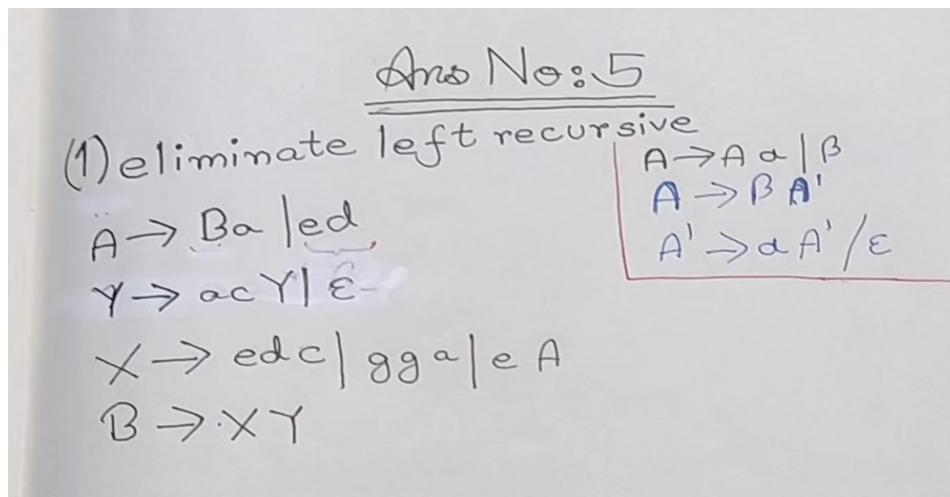 Ans No:5
(1) eliminate left recursive
A → Ba | ed
Y → acY | ε
X → edc | gga | eA
B → XY
A → Aα | β
A → βA'
A' → αA' / ε